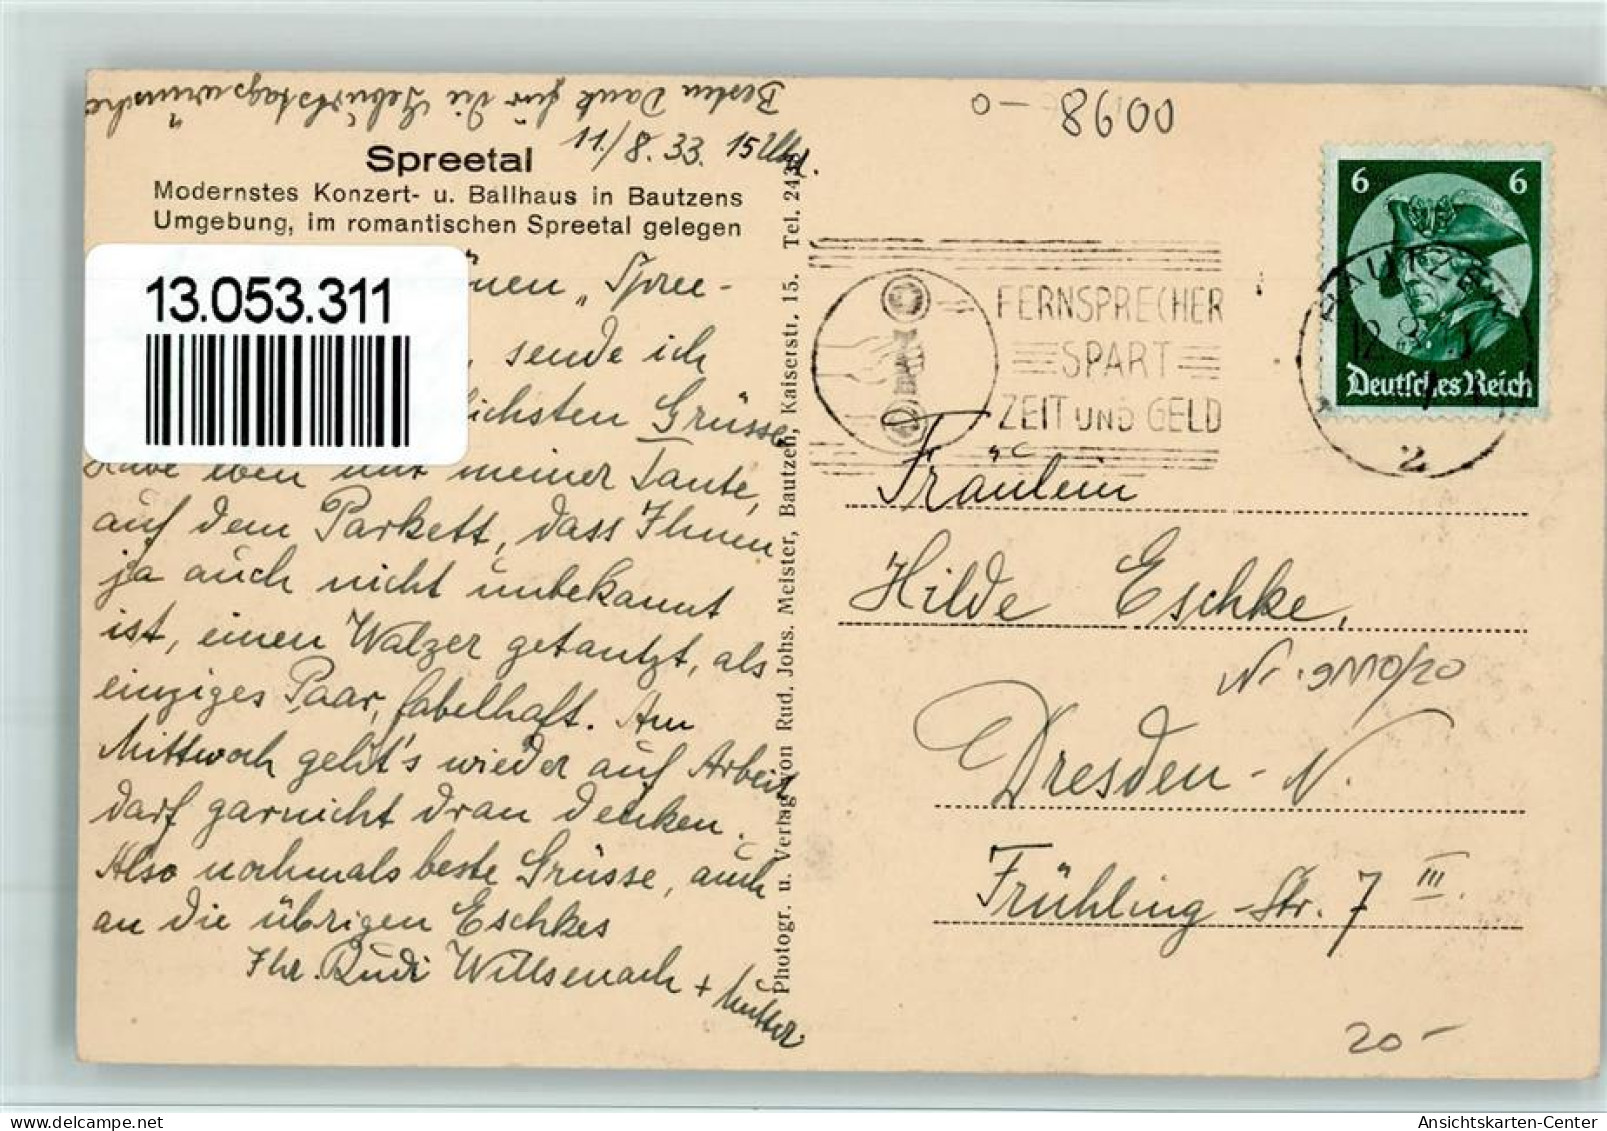 Besten Dank für die Geburtstagswünsche
11./8.33. 15 Uhr.
Spreetal
Modernstes Konzert- u. Ballhaus in Bautzens
Umgebung, im romantischen Spreetal gelegen
13.053.311
„Spree-
sende ich
Grüsse
Habe eben mit meiner Tante,
auf dem Parkett, dass Ihnen
ja auch nicht unbekannt
ist, einen Walzer getantzt, als
einziges Paar, fabelhaft. Am
Mittwoch geht's wieder auf Arbeit
darf garnicht dran denken.
Also nochmals beste Grüsse, auch
an die übrigen Eschkes
Ihr Rudi Willsenach + Mutter
Photogr. u. Verlag von Rud. Johs. Meister, Bautzen, Kaiserstr. 15. Tel. 2438
0098 -0
FERNSPRECHER
SPART
ZEIT UND GELD
BAUTZEN
2
6 6
Deutsches Reich
Fräulein
Hilde Eschke,
Dresden-N.
Frühling-Str. 7 III.
20-
Ansichtskarten-Center